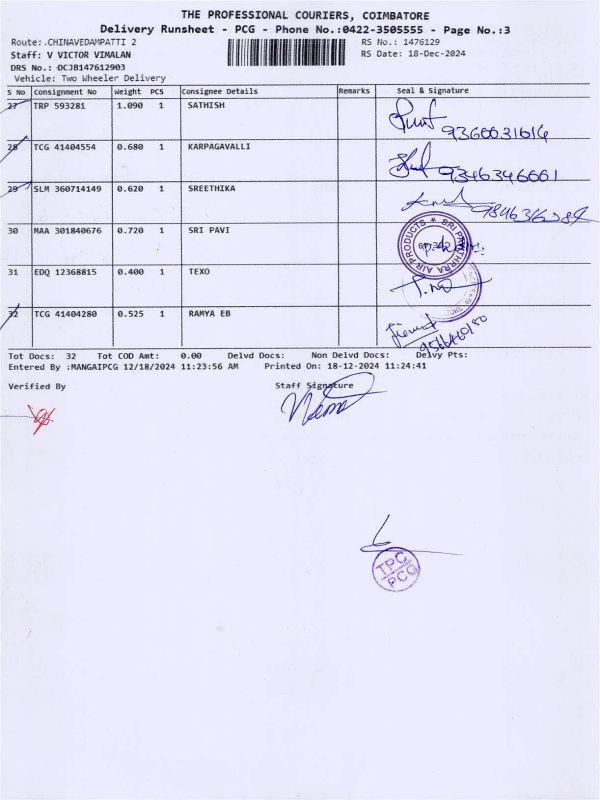 THE PROFESSIONAL COURIERS, COIMBATORE
Delivery Runsheet - PCG - Phone No.:0422-3505555 - Page No.:3
Route:.CHINAVEDAMPATTI 2 RS No.: 1476129
Staff: V VICTOR VIMALAN RS Date: 18-Dec-2024
DRS No.: DCJB147612903
Vehicle: Two Wheeler Delivery
S No Consignment No Weight PCS Consignee Details Remarks Seal & Signature
27 TRP 593281 1.090 1 SATHISH
9360031614
28 TCG 41404554 0.680 1 KARPAGAVALLI
9346346661
29 SLM 360714149 0.620 1 SREETHIKA
30 MAA 301840676 0.720 1 SRI PAVI
AIR PRODUCTS * SRI
31 EDQ 12368815 0.400 1 TEXO
32 TCG 41404280 0.525 1 RAMYA EB
Tot Docs: 32 Tot COD Amt: 0.00 Delvd Docs: Non Delvd Docs: Delvy Pts:
Entered By :MANGAIPCG 12/18/2024 11:23:56 AM Printed On: 18-12-2024 11:24:41
Verified By Staff Signature
TPC
PCG